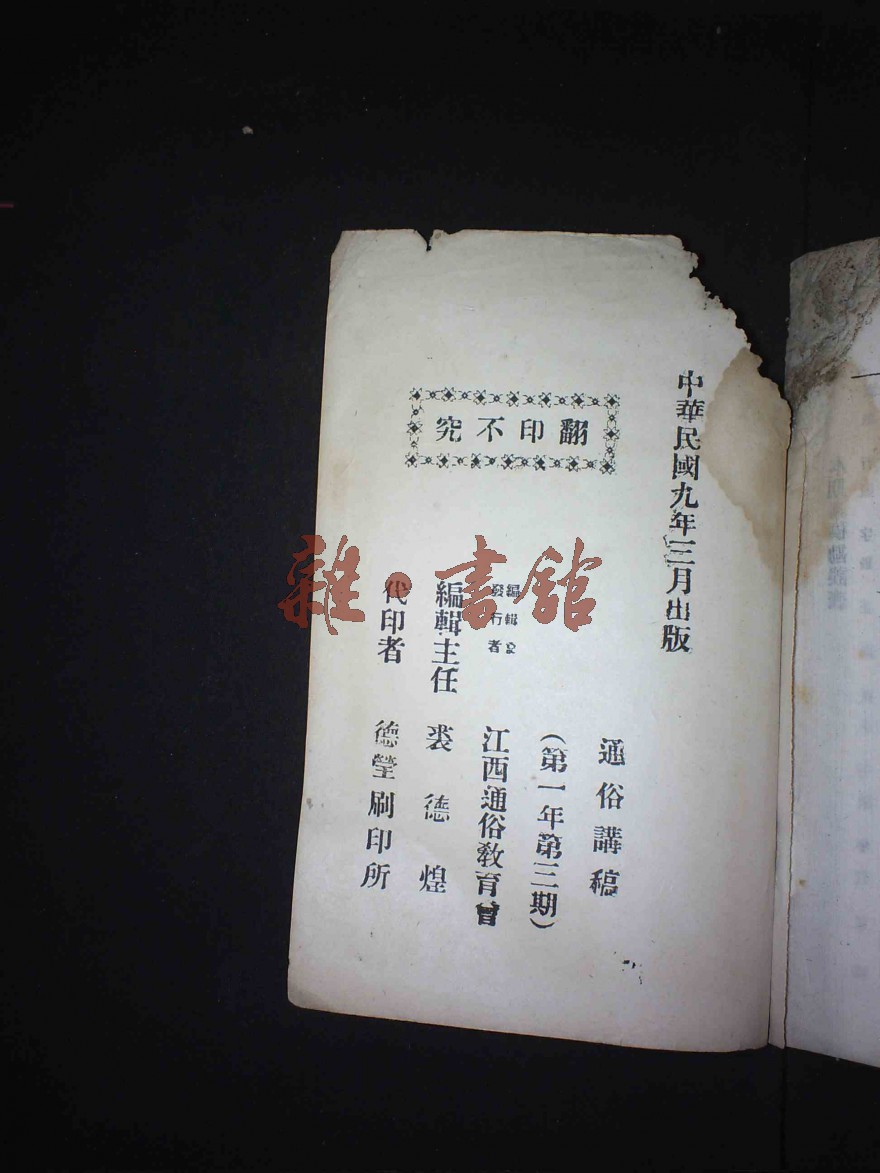 中華民國九年三月出版
翻印不究
通俗講稿
(第一年第三期)
編輯兼
發行者
江西通俗教育會
編輯主任 裘德煌
代印者 德瑩刷印所
雜·書館